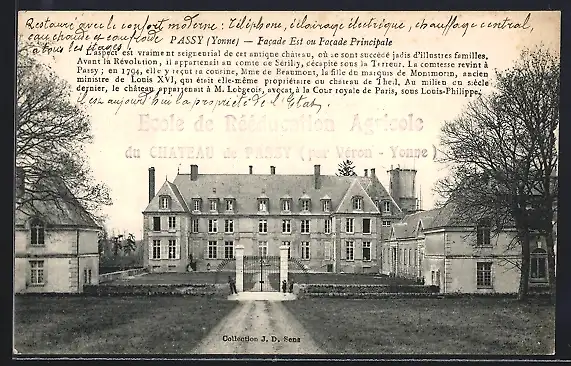 Restauré avec le confort moderne : Téléphone, éclairage électrique, chauffage central,
eau chaude et eau froide
à tous les étages !
PASSY (Yonne) — Façade Est ou Façade Principale
L'aspect est vraiment seigneurial de cet antique château, où se sont succédé jadis d'illustres familles.
Avant la Révolution, il appartenait au comte de Sérilly, décapité sous la Terreur. La comtesse revint à
Passy ; en 1794, elle y reçut sa cousine, Mme de Beaumont, la fille du marquis de Montmorin, ancien
ministre de Louis XVI, qui était elle-même propriétaire du château de Theil. Au milieu du siècle
dernier, le château appartenait à M. Lobgeois, avocat à la Cour royale de Paris, sous Louis-Philippe.
Il est aujourd'hui la propriété de l'Etat.
Ecole de Rééducation Agricole
du CHATEAU de PASSY ( par Véron - Yonne )
Collection J. D. Sens